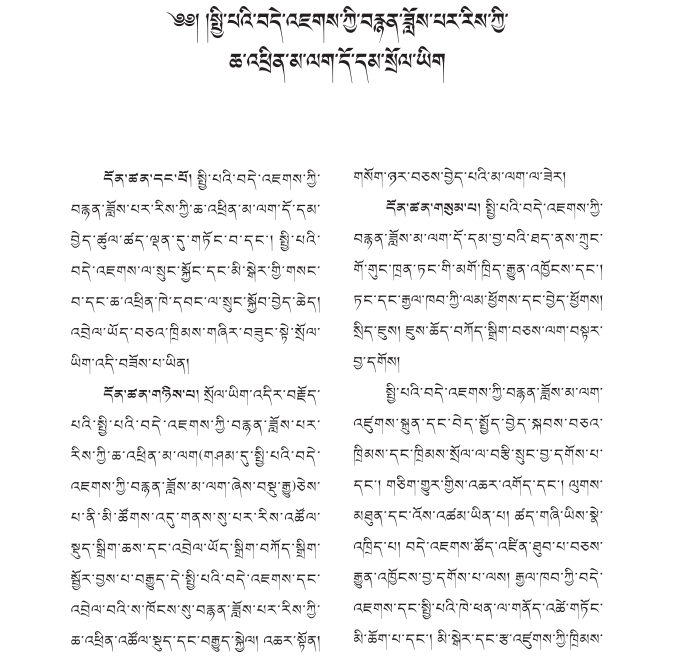 ༄༅། །སྤྱི་པའི་བདེ་འཇགས་ཀྱི་བརྙན་ཟློས་པར་རིས་ཀྱི་
ཆ་འཕྲིན་མ་ལག་དོ་དམ་སྲོལ་ཡིག
དོན་ཚན་དང་པོ། སྤྱི་པའི་བདེ་འཇགས་ཀྱི་
བརྙན་ཟློས་པར་རིས་ཀྱི་ཆ་འཕྲིན་མ་ལག་དོ་དམ་
བྱེད་ཚུལ་ཚད་ལྡན་དུ་གཏོང་བ་དང་། སྤྱི་པའི་
བདེ་འཇགས་ལ་སྲུང་སྐྱོང་དང་མི་སྒེར་གྱི་གསང་
བ་དང་ཆ་འཕྲིན་ཁེ་དབང་ལ་སྲུང་སྐྱོབ་བྱེད་ཆེད།
འབྲེལ་ཡོད་བཅའ་ཁྲིམས་གཞིར་བཟུང་སྟེ་སྲོལ་
ཡིག་འདི་བཟོས་པ་ཡིན།
དོན་ཚན་གཉིས་པ། སྲོལ་ཡིག་འདིར་བརྗོད་
པའི་སྤྱི་པའི་བདེ་འཇགས་ཀྱི་བརྙན་ཟློས་པར་
རིས་ཀྱི་ཆ་འཕྲིན་མ་ལག(གཤམ་དུ་སྤྱི་པའི་བདེ་
འཇགས་ཀྱི་བརྙན་ཟློས་མ་ལག་ཞེས་བསྡུ་རྒྱུ)ཅེས་
པ་ནི་མི་ཚོགས་འདུ་གནས་སུ་པར་རིས་འཚོལ་
སྡུད་སྒྲིག་ཆས་དང་འབྲེལ་ཡོད་སྒྲིག་བཀོད་སྒྲིག་
སྦྱོར་བྱས་པ་བརྒྱུད་དེ་སྤྱི་པའི་བདེ་འཇགས་དང་
འབྲེལ་བའི་ས་ཁོངས་སུ་བརྙན་ཟློས་པར་རིས་ཀྱི་
ཆ་འཕྲིན་འཚོལ་སྡུད་དང་བརྒྱུད་སྐྱེལ། འཆར་སྟོན།
གསོག་ཉར་བཅས་བྱེད་པའི་མ་ལག་ལ་ཟེར།
དོན་ཚན་གསུམ་པ། སྤྱི་པའི་བདེ་འཇགས་ཀྱི་
བརྙན་ཟློས་མ་ལག་དོ་དམ་བྱ་བའི་ཐད་ནས་ཀྲུང་
གོ་གུང་ཁྲན་ཏང་གི་མགོ་ཁྲིད་རྒྱུན་འཁྱོངས་དང་།
ཏང་དང་རྒྱལ་ཁབ་ཀྱི་ལམ་ཕྱོགས་དང་བྱེད་ཕྱོགས།
སྲིད་ཇུས། ཇུས་ཆོད་བཀོད་སྒྲིག་བཅས་ལག་བསྟར་
བྱ་དགོས།
སྤྱི་པའི་བདེ་འཇགས་ཀྱི་བརྙན་ཟློས་མ་ལག་
འཛུགས་སྐྲུན་དང་བེད་སྤྱོད་བྱེད་སྐབས་བཅའ་
ཁྲིམས་དང་ཁྲིམས་སྲོལ་ལ་བརྩི་སྲུང་བྱ་དགོས་པ་
དང་། གཅིག་གྱུར་གྱིས་འཆར་འགོད་དང་། ལུགས་
མཐུན་དང་འོས་འཚམ་ཡིན་པ། ཚད་གཞི་ཡིས་སྣེ་
འཁྲིད་པ། བདེ་འཇགས་ཚོད་འཛིན་ཐུབ་པ་བཅས་
རྒྱུན་འཁྱོངས་བྱ་དགོས་པ་ལས། རྒྱལ་ཁབ་ཀྱི་བདེ་
འཇགས་དང་སྤྱི་པའི་ཁེ་ཕན་ལ་གནོད་འཚེ་གཏོང་
མི་ཆོག་པ་དང་། མི་སྒེར་དང་རྩ་འཛུགས་ཀྱི་ཁྲིམས་